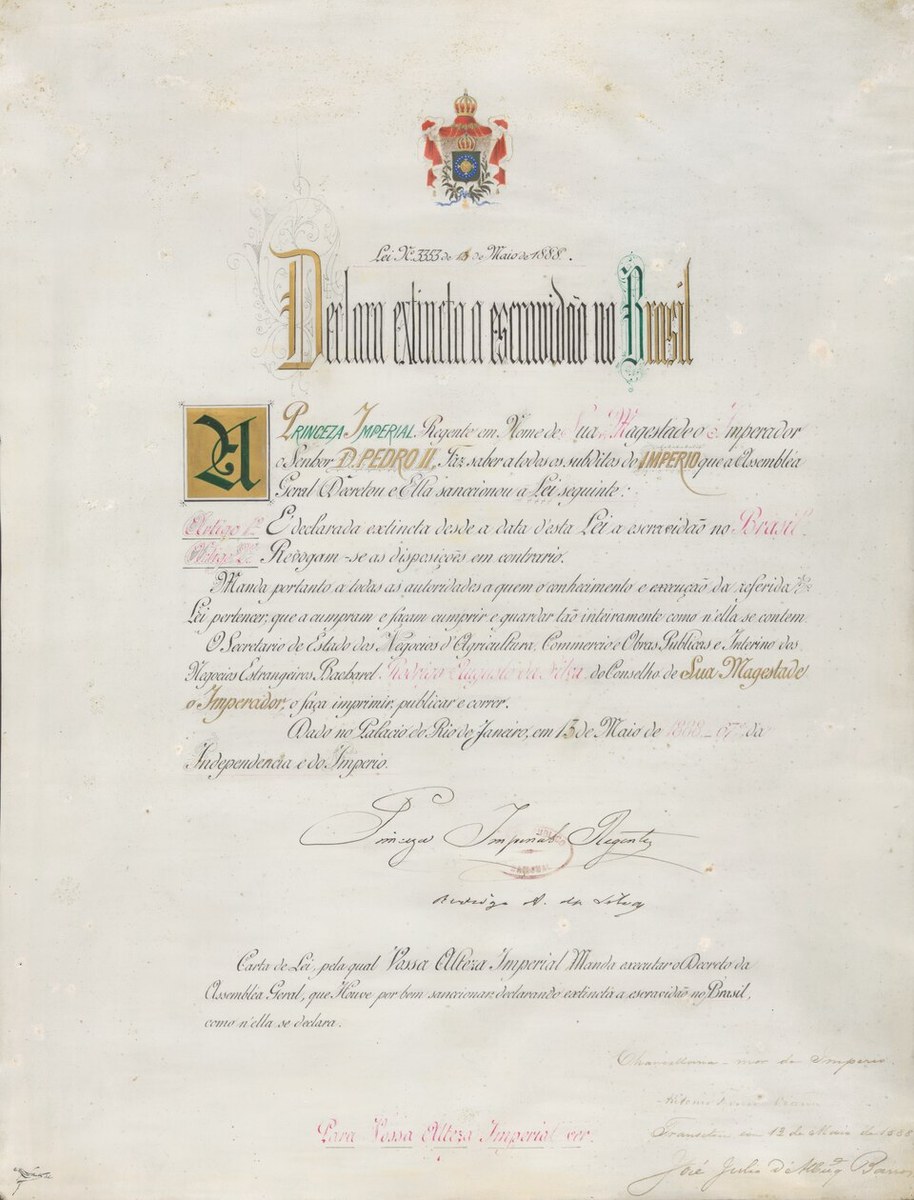 Lei Nº 3353 de 13 de Maio de 1888.
Declara extincta a escravidão no Brasil
A PRINCEZA IMPERIAL Regente em Nome de Sua Magestade o Imperador
o Senhor D. PEDRO II, Faz saber a todos os subditos do IMPERIO que a Assembléa
Geral Decretou e Ella sanccionou a Lei seguinte:
Artigo 1º É declarada extincta desde a data d'esta Lei a escravidão no Brasil.
Artigo 2º Revogam-se as disposições em contrario.
Manda portanto a todas as autoridades a quem o conhecimento e execução da referida
Lei pertencer, que a cumpram e façam cumprir e guardar tão inteiramente como n'ella se contem.
O Secretario de Estado dos Negocios d'Agricultura, Commercio e Obras Publicas e Interino dos
Negocios Estrangeiros Bacharel Rodrigo Augusto da Silva do Conselho de Sua Magestade
o Imperador, o faça imprimir, publicar e correr.
Dado no Palacio do Rio de Janeiro, em 13 de Maio de 1888 - 67º da
Independencia e do Imperio.
Princeza Imperial Regente
Rodrigo A. da Silva
Carta de Lei, pela qual Vossa Alteza Imperial Manda executar o Decreto da
Assembléa Geral, que Houve por bem sanccionar, declarando extincta a escravidão no Brasil,
como n'ella se declara.
Chancellaria-mór do Imperio
Antonio Ferreira Vianna
Para Vossa Alteza Imperial ver.
Transitou em 13 de Maio de 1888
José Julio d'Albuqº Barros